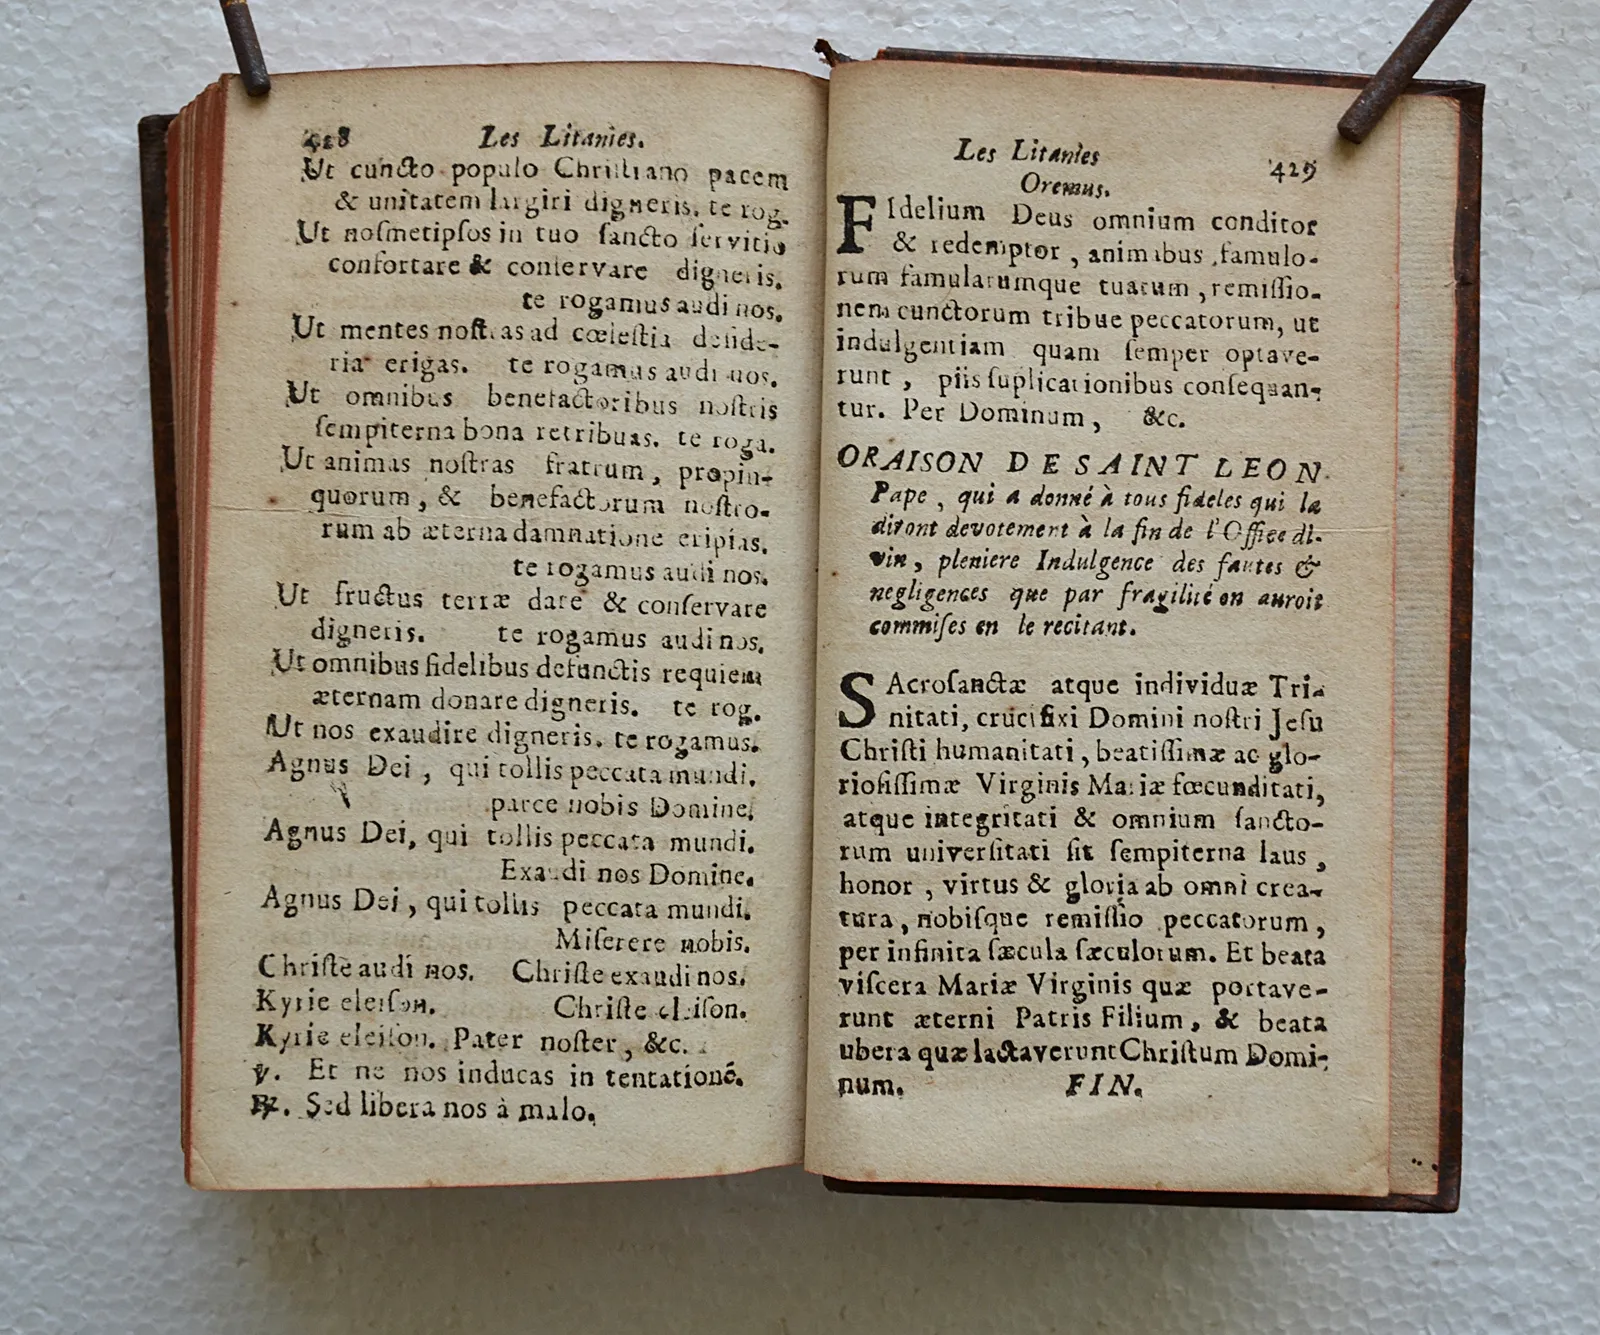 428 Les Litanies.
Ut cuncto populo Chriſtiano pacem
& unitatem largiri digneris. te rog.
Ut noſmetipſos in tuo ſancto ſervitio
confortare & conſervare digneris.
te rogamus audi nos.
Ut mentes noſtras ad cœleſtia deſide-
ria erigas. te rogamus audi nos.
Ut omnibus benefactoribus noſtris
ſempiterna bona retribuas. te roga.
Ut animas noſtras fratrum, propin-
quorum, & benefactorum noſtro-
rum ab æterna damnatione eripias.
te rogamus audi nos.
Ut fructus terræ dare & conſervare
digneris. te rogamus audi nos.
Ut omnibus fidelibus defunctis requiem
æternam donare digneris. te rog.
Ut nos exaudire digneris. te rogamus.
Agnus Dei, qui tollis peccata mundi.
parce nobis Domine.
Agnus Dei, qui tollis peccata mundi.
Exaudi nos Domine.
Agnus Dei, qui tollis peccata mundi.
Miſerere nobis.
Chriſte audi nos. Chriſte exaudi nos.
Kyrie eleiſon. Chriſte eleiſon.
Kyrie eleiſon. Pater noſter, &c.
℣. Et ne nos inducas in tentationé.
℟. Sed libera nos à malo.
Les Litanies 429
Oremus.
FIdelium Deus omnium conditor
& redemptor, animabus famulo-
rum famularumque tuarum, remiſſio-
nem cunctorum tribue peccatorum, ut
indulgentiam quam ſemper optave-
runt, piis ſuplicationibus conſequan-
tur. Per Dominum, &c.
ORAISON DE SAINT LEON
Pape, qui a donné à tous fideles qui la
diront devotement à la fin de l'Office di-
vin, pleniere Indulgence des fautes &
negligences que par fragilité on auroit
commiſes en le recitant.
SAcroſanctæ atque individuæ Tri-
nitati, crucifixi Domini noſtri Jeſu
Chriſti humanitati, beatiſſimæ ac glo-
rioſiſſimæ Virginis Mariæ fœcunditati,
atque integritati & omnium ſancto-
rum univerſitati ſit ſempiterna laus,
honor, virtus & gloria ab omni crea-
tura, nobiſque remiſſio peccatorum,
per infinita ſæcula ſæculorum. Et beata
viſcera Mariæ Virginis quæ portave-
runt æterni Patris Filium, & beata
ubera quæ lactaverunt Chriſtum Domi-
num. FIN.